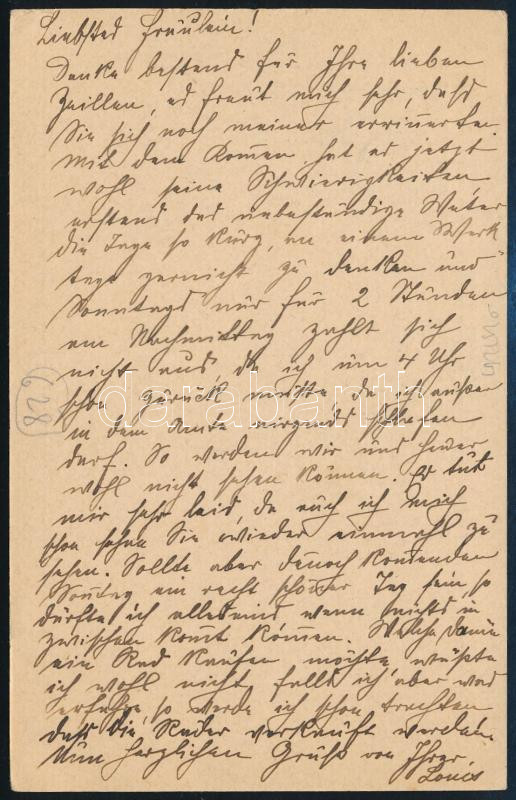 Liebstes Fräulein!
Danke bestens für Ihre lieben
Zeillen, es freut mich sehr, dass
Sie sich noch meiner erinnerten.
Mit dem Komen hat es jetzt
wohl seine Schwierigkeiten
erstens das unbeständige Wetter
die Tage so kurz, an einem Werk
tage garnicht zu denken und
Sonntags nur für 2 Stunden
am Nachmittag zahlt sich
nicht aus, da ich um 4 Uhr
schon zurück müsste da ich außer
in dem Amte nirgends schlafen
darf. So werden wir uns heuer
wohl nicht sehen können. Es tut
mir sehr leid, da auch ich mich
schon sehne Sie wieder einmahl zu
sehen. Sollte aber denoch komenden
Sontag ein recht schöner Tag sein so
dürfte ich allesmis wenn nichts in
zwischen komt kommen. Welche Dame
ein Rad kaufen möchte, wüßte
ich wohl nicht, falls ich aber was
erfahre, so werde ich schon trachten
dass die Räder verkauft werden.
Nun herzlichen Gruß von Ihrer
Louis
628
darabanth